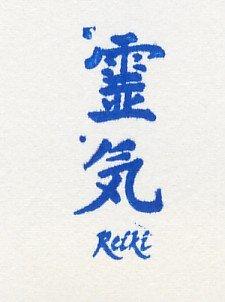 靈
気
Reiki